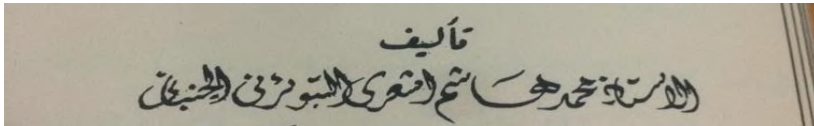 تأليف
الأستاذ محمد هاشم اشعري التبوئرني الجنبانى